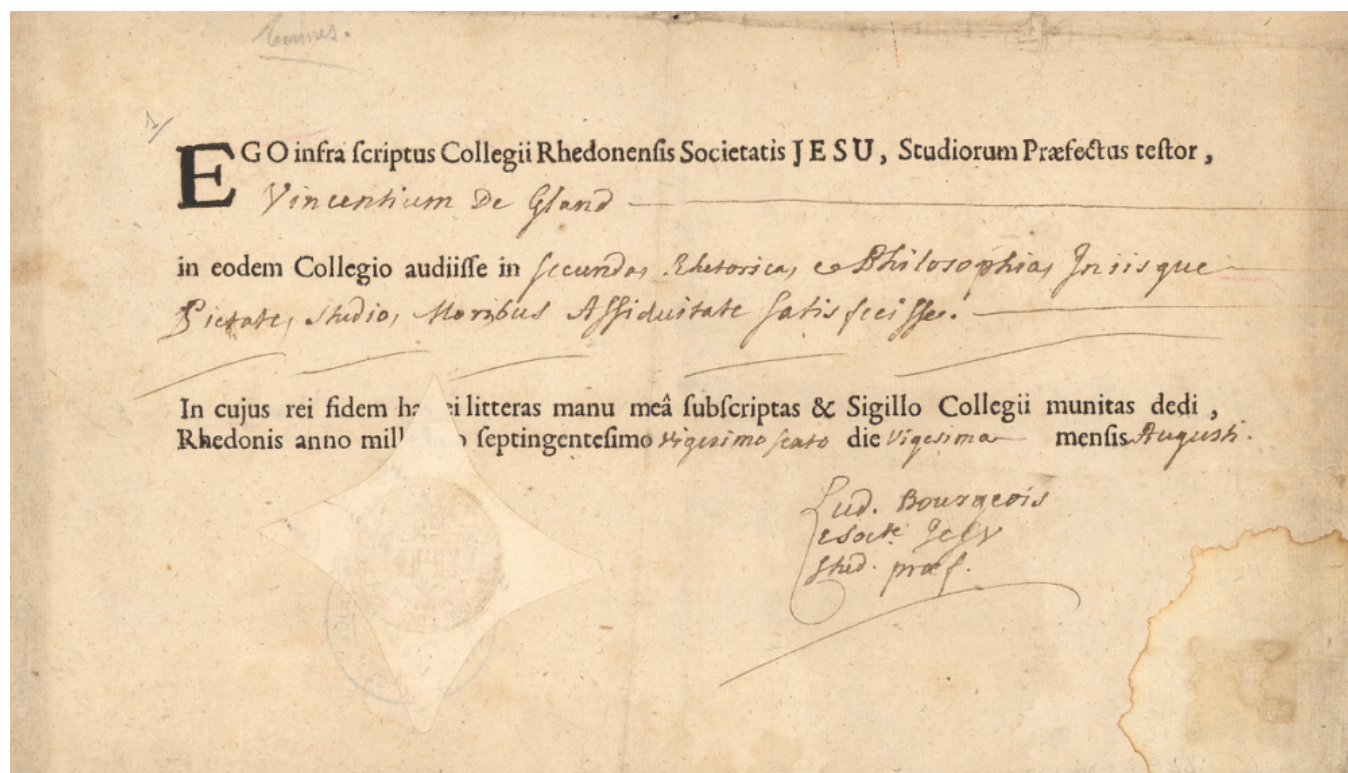 Rennes.
EGO infra ſcriptus Collegii Rhedonenſis Societatis JESU, Studiorum Præfectus teſtor,
Vincentium De Gland
in eodem Collegio audiiſſe in ſecunda, Rhetorica, & Philosophia, Iniisque
Pietate, studio, Moribus Assiduitate satisfecisse.
In cujus rei fidem ha ei litteras manu meâ ſubſcriptas & Sigillo Collegii munitas dedi,
Rhedonis anno mill o ſeptingenteſimo vigesimo sexto die Vigesima menſis Augusti.
Lud. Bourgeois
e Socte. Jesu
stud. præf.